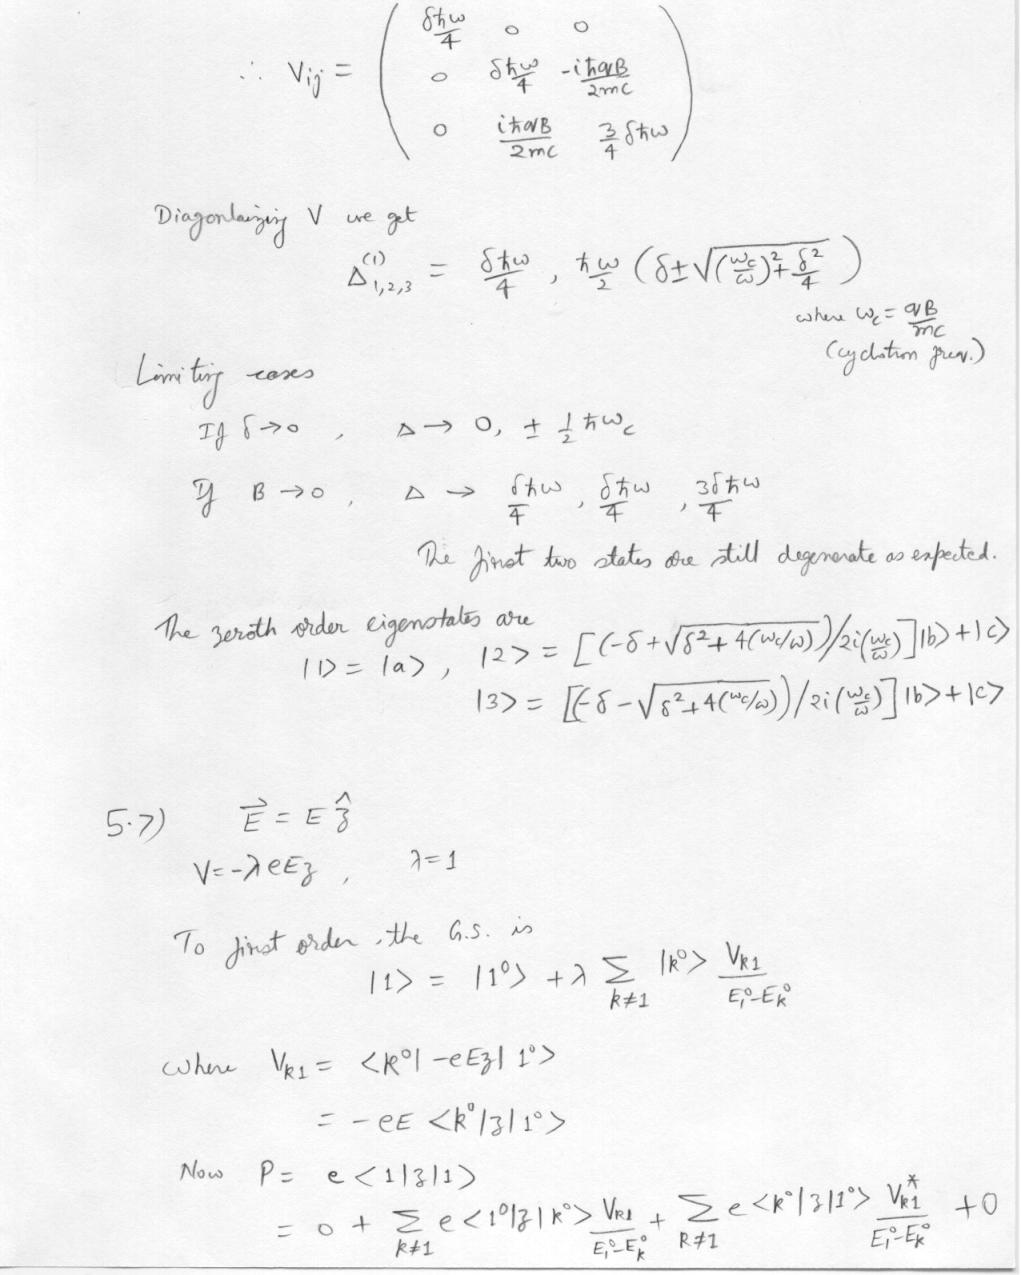 ∴ V_ij = ( δħω/4 0 0
0 δħω/4 -iħqB/2mc
0 iħqB/2mc 3/4 δħω )
Diagonlaizing V we get
Δ^(1)_1,2,3 = δħω/4 , ħω/2 (δ ± √((ω_c/ω)² + δ²/4))
where ω_c = qB/mc
(cyclotron freq.)
Limiting cases
If δ→0 , Δ → 0, ± 1/2 ħω_c
If B →0 , Δ → δħω/4 , δħω/4 , 3δħω/4
The first two states are still degenerate as expected.
The zeroth order eigenstates are
|1> = |a> , |2> = [(-δ + √(δ² + 4(ω_c/ω)))/2i(ω_c/ω)]|b> + |c>
|3> = [(-δ - √(δ² + 4(ω_c/ω)))/2i(ω_c/ω)]|b> + |c>
5.7) E⃗ = E ẑ
V = -λeEz , λ=1
To first order, the G.S. is
|1> = |1°> + λ Σ_k≠1 |k°> V_k1/(E₁° - E_k°)
where V_k1 = <k°| -eEz| 1°>
= -eE <k°|z|1°>
Now P = e<1|z|1>
= 0 + Σ_k≠1 e<1°|z|k°> V_k1/(E₁° - E_k°) + Σ_k≠1 e<k°|z|1°> V*_k1/(E₁° - E_k°) + 0